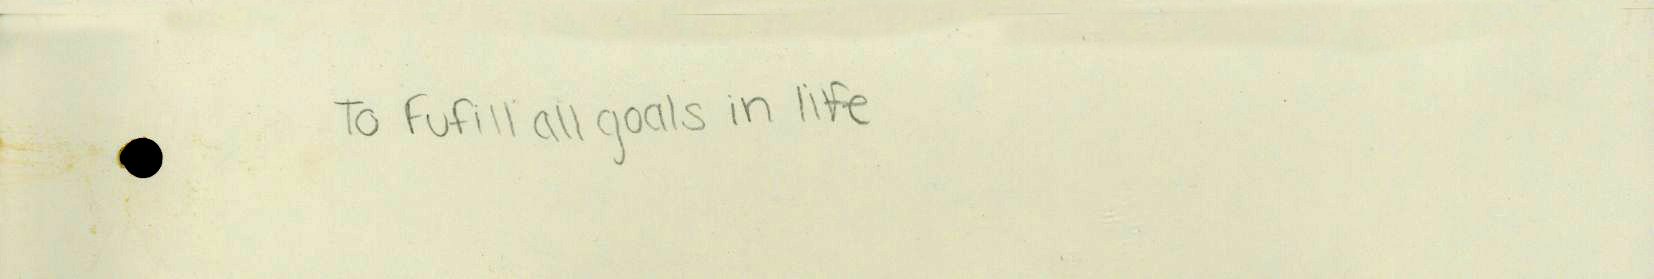 To fufill all goals in life